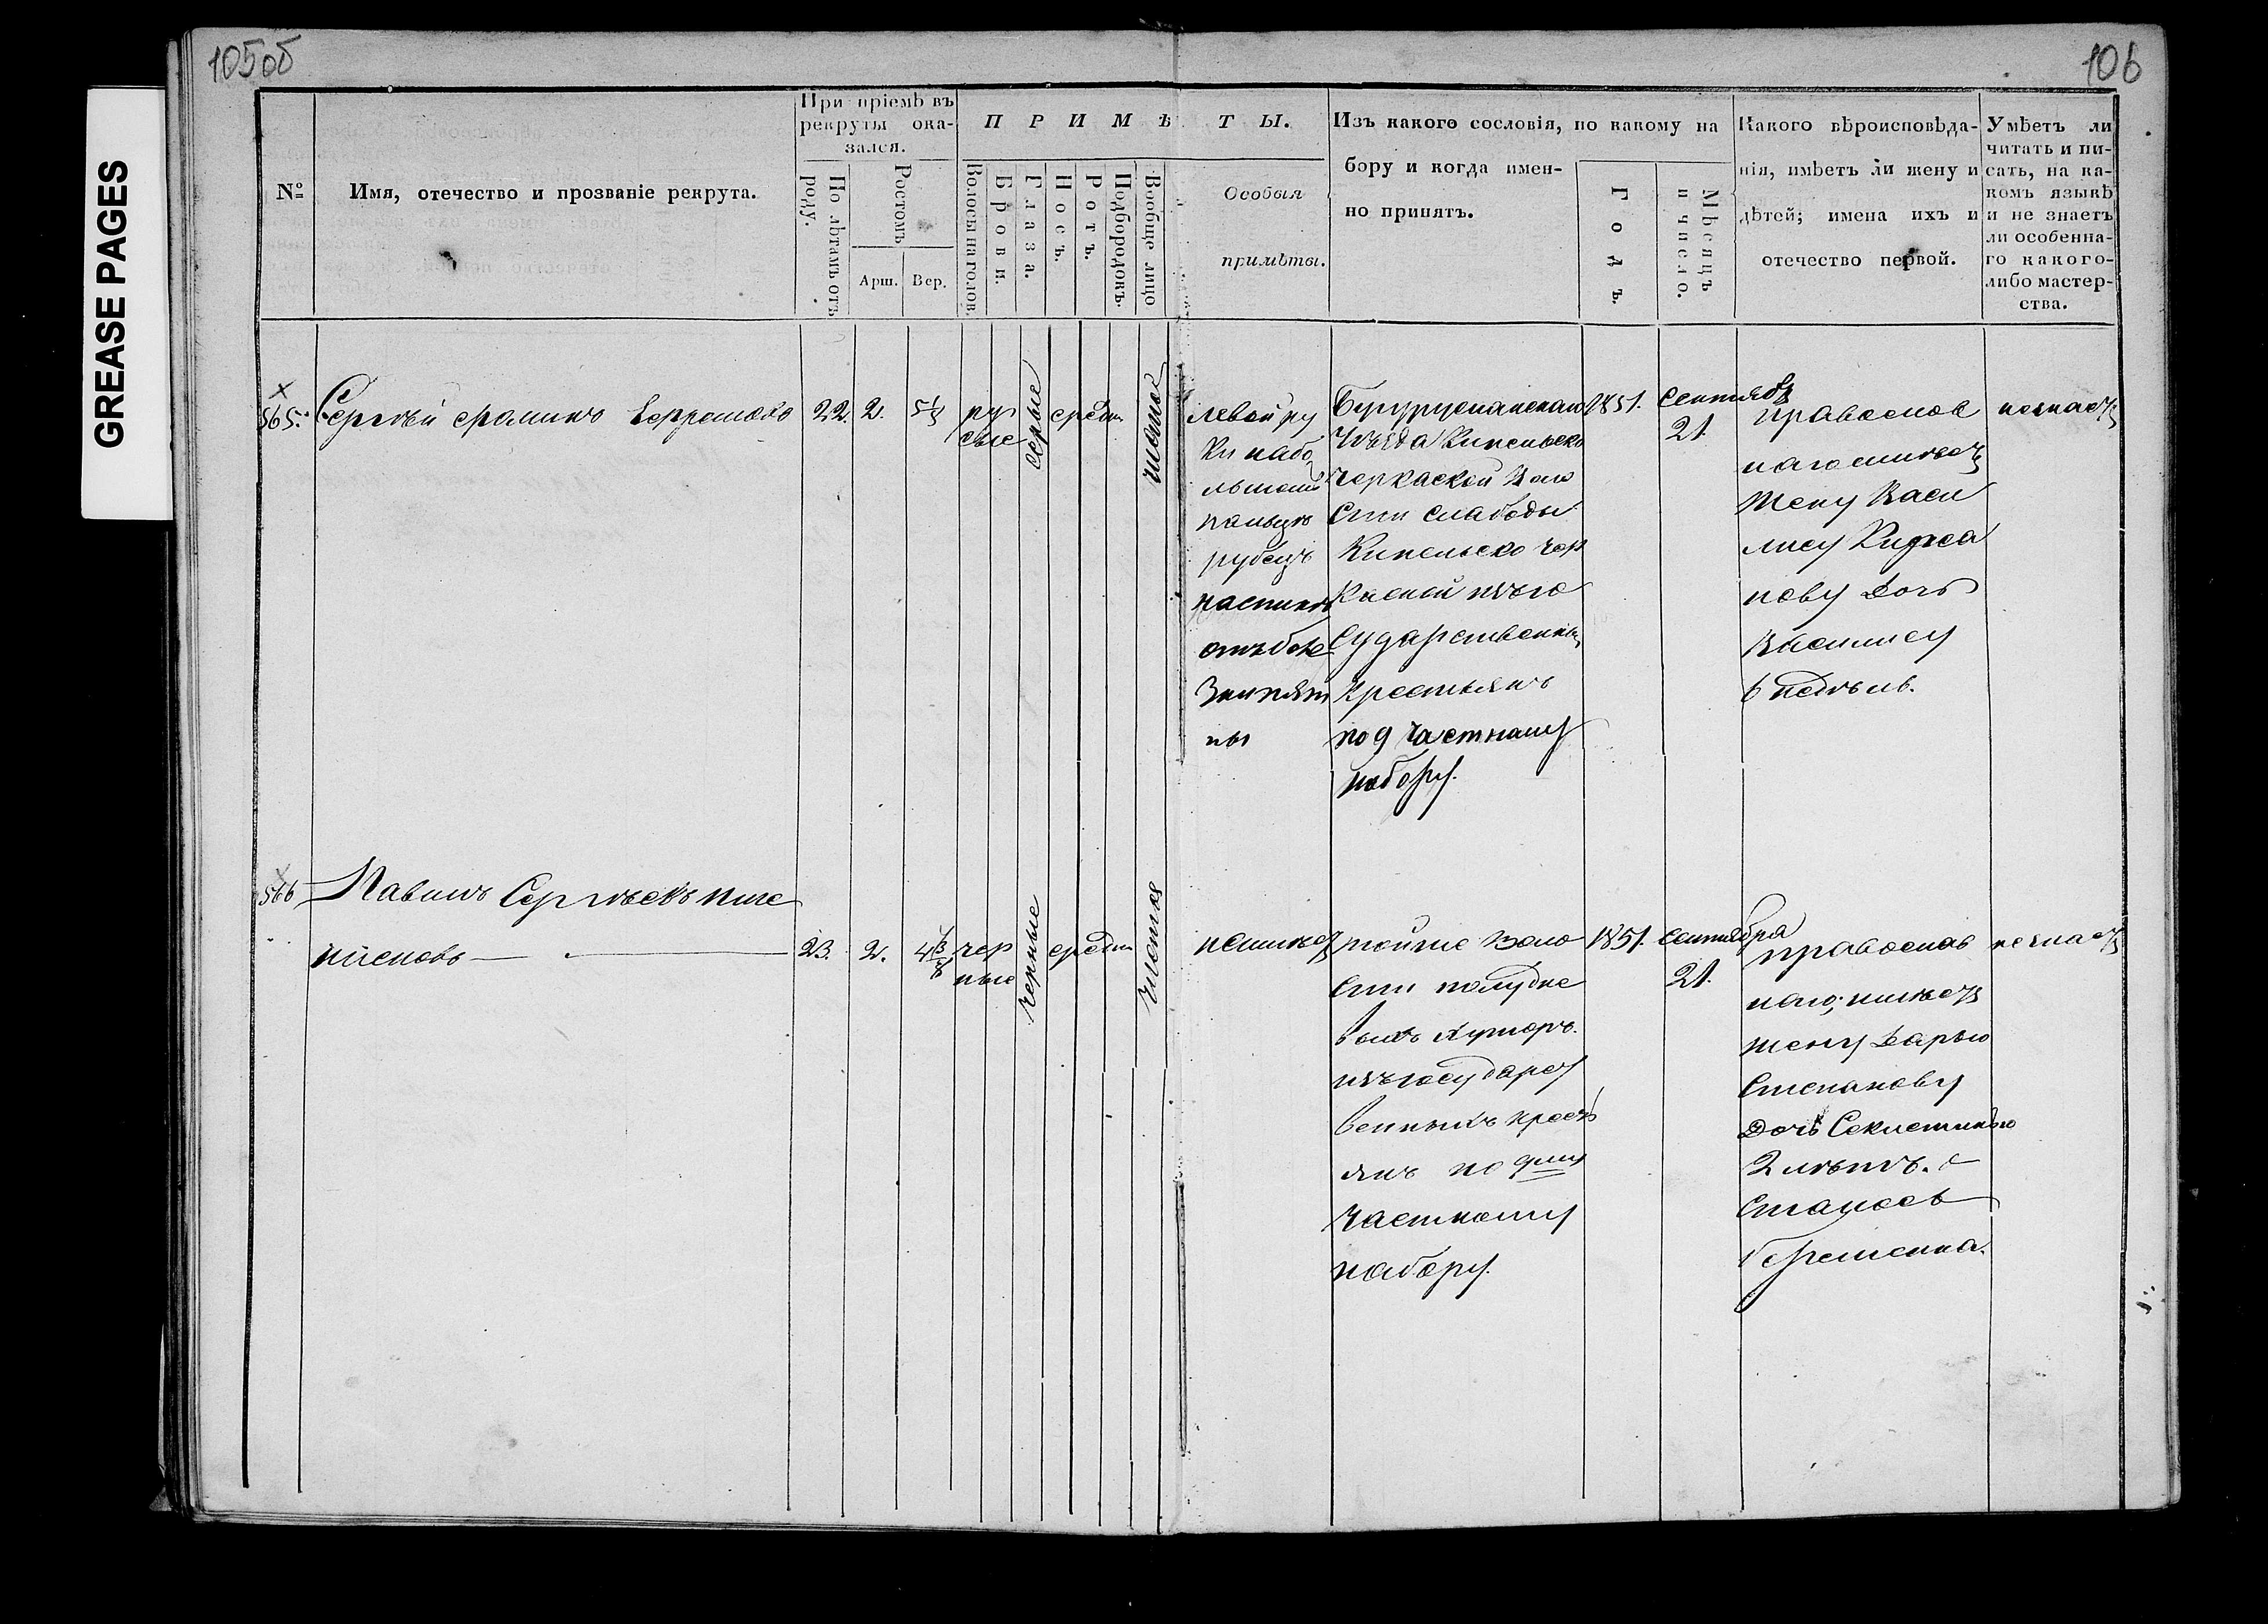 105об
106
GREASE PAGES
№
Имя, отечество и прозваніе рекрута.
При пріемѣ въ
рекруты ока-
зался.
По лѣтамъ отъ
роду.
Ростомъ
Арш.
Вер.
ПРИМѢТЫ.
Волосы на голов.
Брови.
Глаза.
Носъ.
Ротъ.
Подбородокъ.
Вообще лицо
Особыя
примѣты.
Изъ какого сословія, по какому на
бору и когда имен-
но принятъ.
Годъ.
Мѣсяцъ
и число.
Какого вѣроисповѣда-
нія, имѣетъ ли жену и
дѣтей; имена ихъ и
отечество первой.
Умѣетъ ли
читать и пи-
сать, на ка-
комъ языкѣ
и не знаетъ
ли особенна-
го какого-
либо мастер-
ства.
565.
Сергѣй
22.
2.
ру
сые
серые
средн
чистое
левой ру
ки набо
льшомъ
пальцѣ
рубецъ
наспинѣ
ны
Бугурусланскаго
Уѣзда Кинельско
Черкаской Воло
сти слабоды
Кинельско Чер
каской изъго
сударственны
крестьянъ
по 9 частному
набору.
1851.
Сентяб
21.
православ
наго имѣетъ
жену Васи
лису
нову Дочь
Василису
6 недѣль.
незнаетъ
566
Павилъ Сергѣевъ
23.
2.
чер
ные
черные
средн
чистое
неимѣетъ
тойже Воло
сти полудне
выхъ хуторъ
изъгосударст
венныхъ крест
янъ по 9му
частному
набору.
1851.
Сентября
21.
православ
наго; имѣетъ
жену Дарью
Степанову
Дочь
2 лѣтъ.
беременна.
незнаетъ